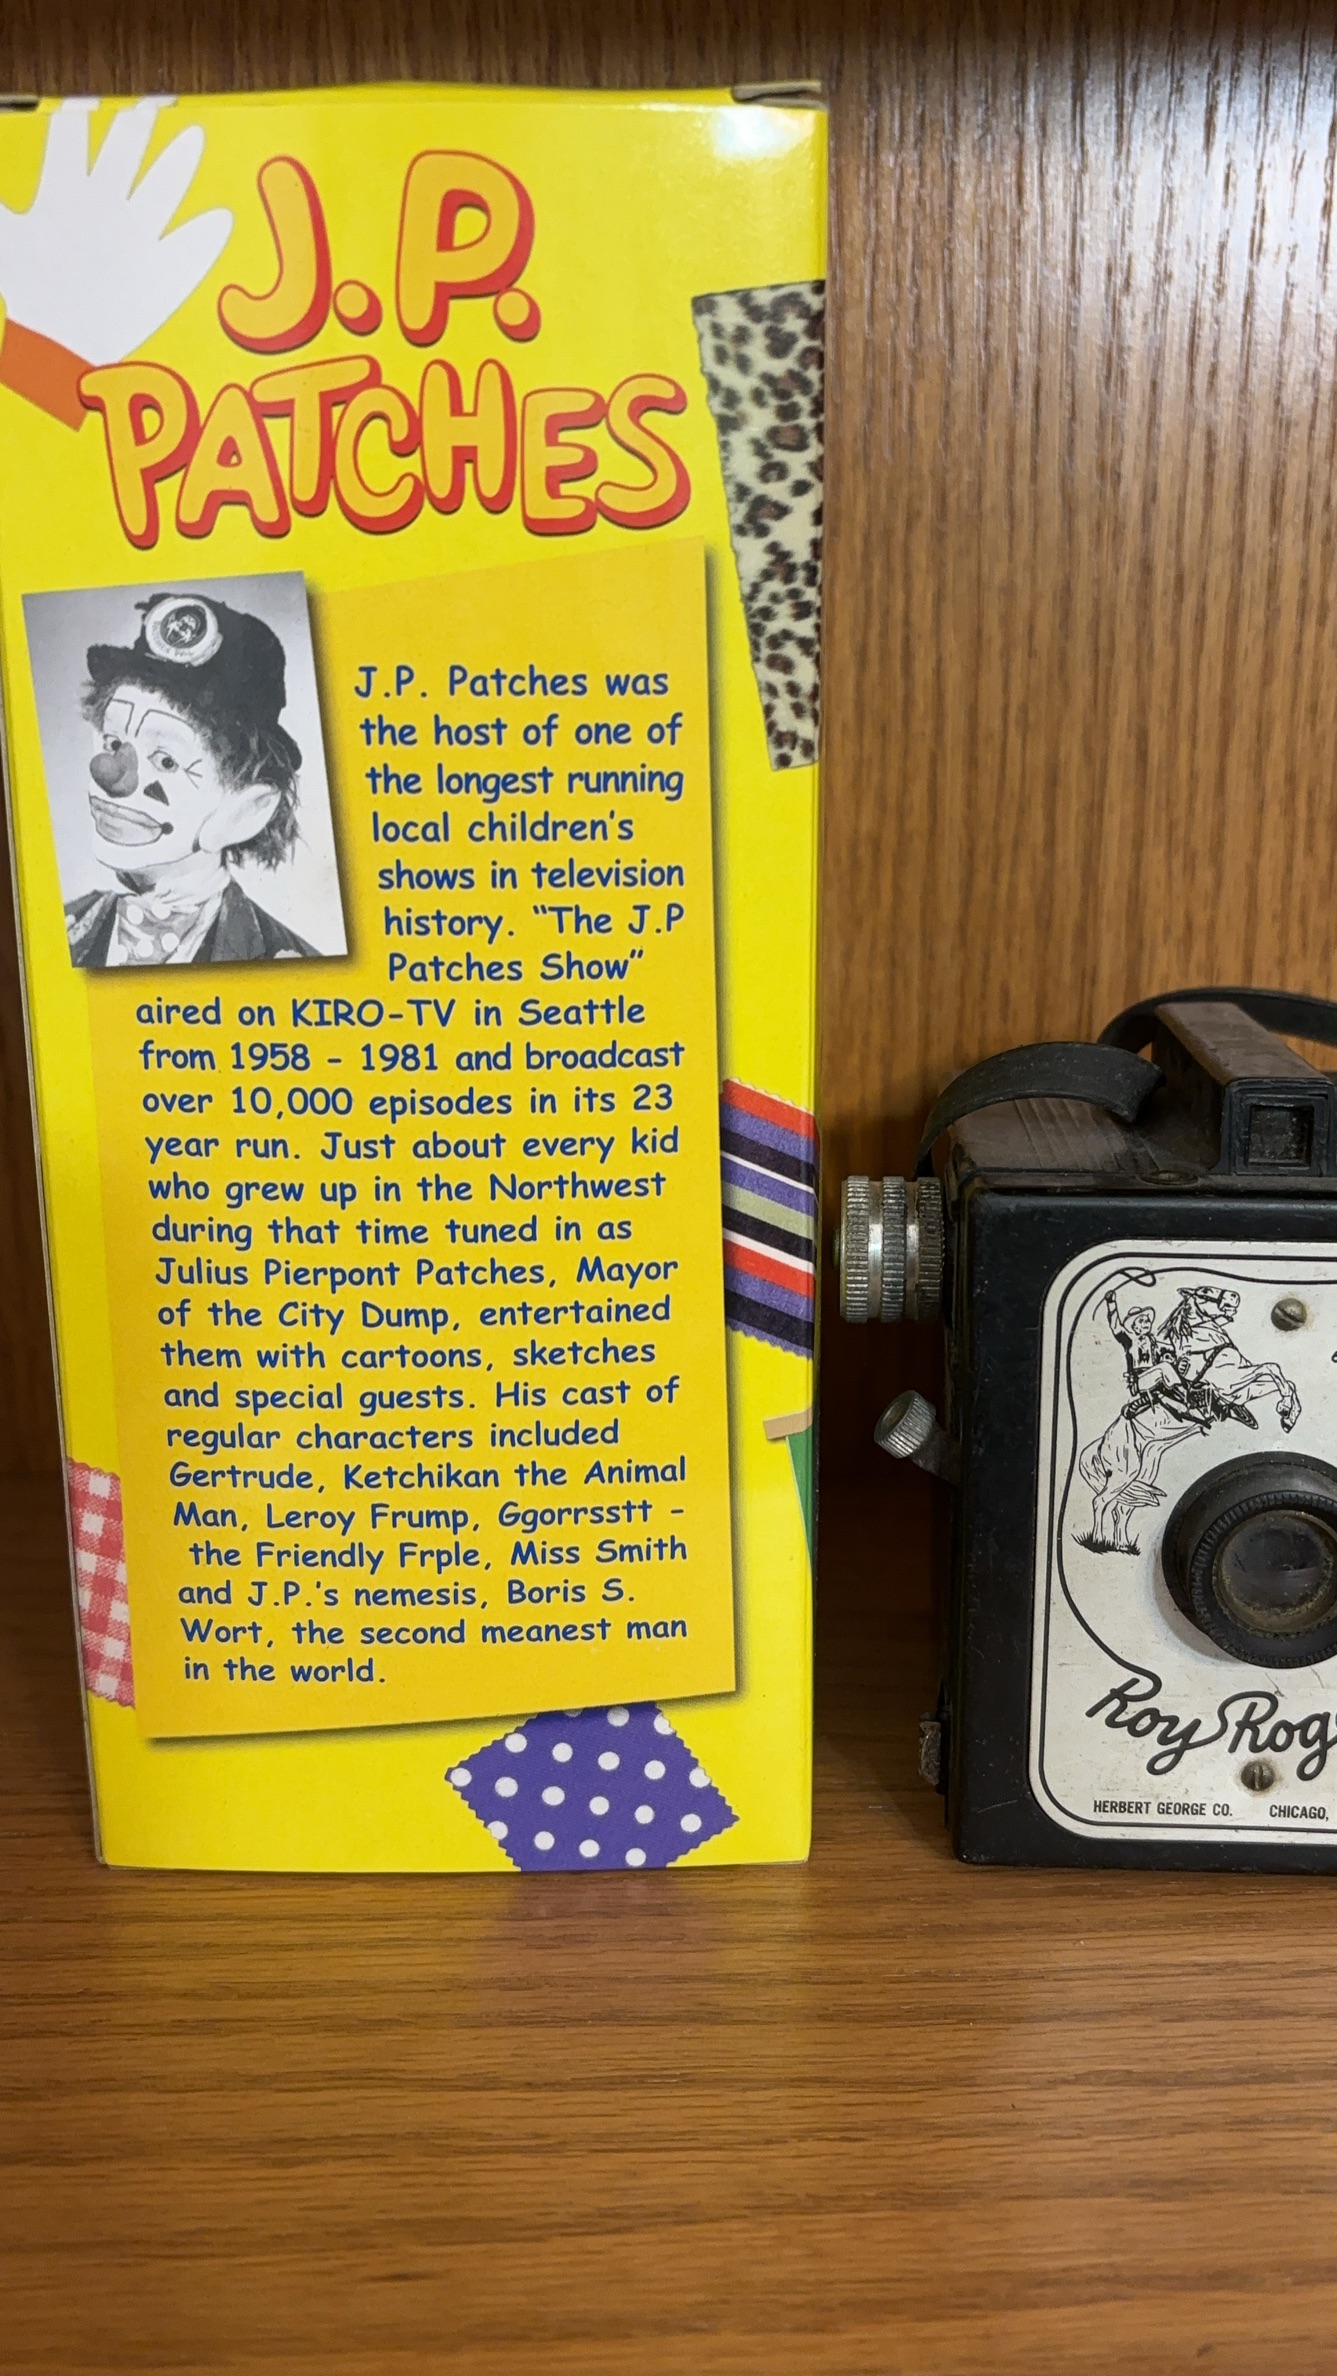 J.P.
PATCHES
J.P. Patches was
the host of one of
the longest running
local children's
shows in television
history. "The J.P
Patches Show"
aired on KIRO-TV in Seattle
from 1958 - 1981 and broadcast
over 10,000 episodes in its 23
year run. Just about every kid
who grew up in the Northwest
during that time tuned in as
Julius Pierpont Patches, Mayor
of the City Dump, entertained
them with cartoons, sketches
and special guests. His cast of
regular characters included
Gertrude, Ketchikan the Animal
Man, Leroy Frump, Ggorrsstt -
the Friendly Frple, Miss Smith
and J.P.'s nemesis, Boris S.
Wort, the second meanest man
in the world.
Roy Rog
HERBERT GEORGE CO. CHICAGO,